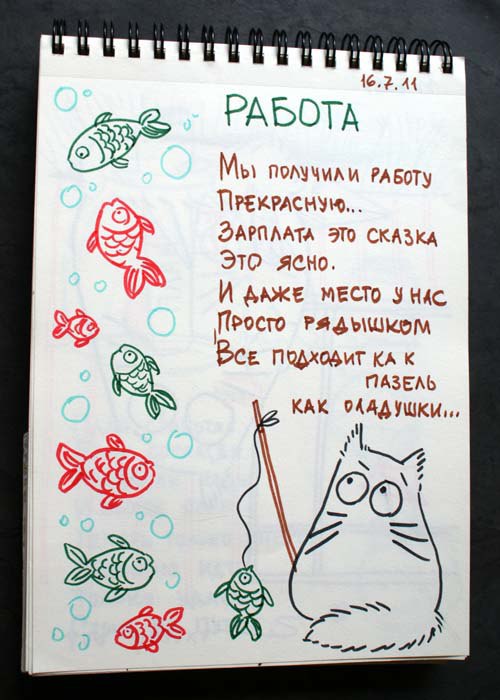 16.7.11
РАБОТА
Мы получили работу
Прекрасную...
Зарплата это сказка
Это ясно.
И даже место у нас
Просто рядышком
Все подходит ка к
пазель
как оладушки...